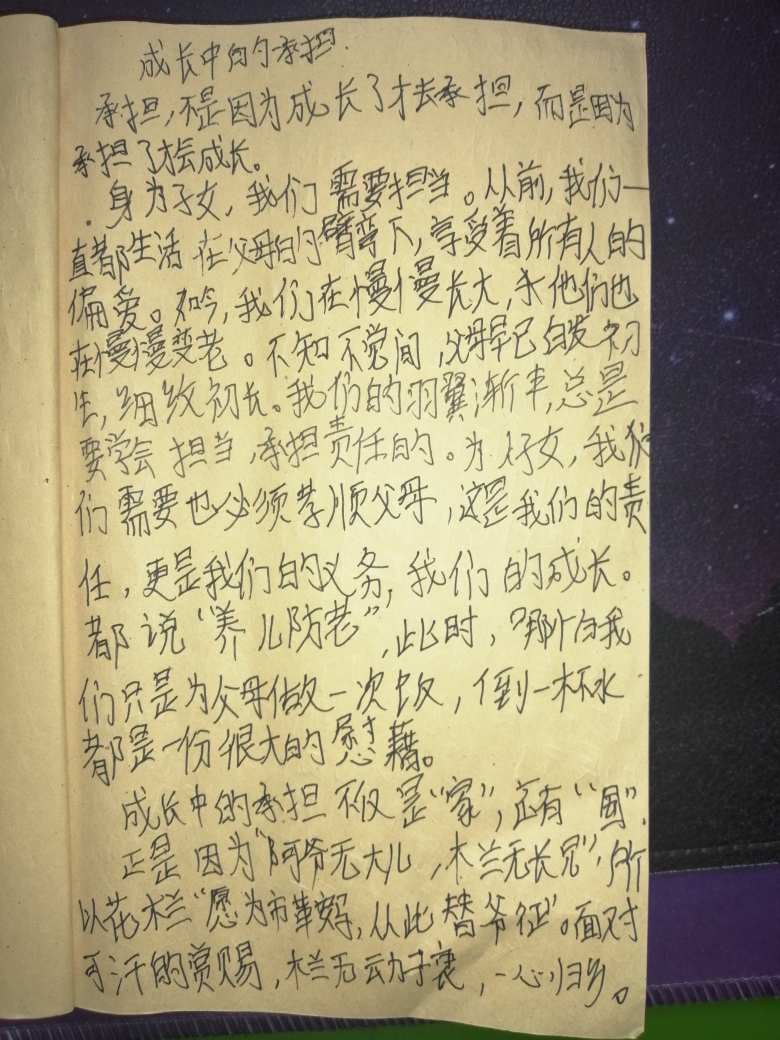 成长中的承担.
承担,不是因为成长了才去承担,而是因为
承担了才会成长。
身为子女,我们需要担当。从前,我们一
直都生活在父母的臂弯下,享受着所有人的
偏爱。如今,我们在慢慢长大,他们也
在慢慢变老。不知不觉间,父母早已白发初
生,细纹初长。我们的羽翼渐丰,总是
要学会担当,承担责任的。为子女,我
们需要也必须孝顺父母,这是我们的责
任,更是我们的义务,我们的成长。
都说“养儿防老”,此时,哪怕我
们只是为父母做一次饭,倒一杯水
都是一份很大的慰藉。
成长中的承担不仅是“家”,还有“国”.
正是因为“阿爷无大儿,木兰无长兄”,所
以花木兰“愿为市鞍,从此替爷征”。面对
可汗的赏赐,木兰无动于衷,一心归乡。